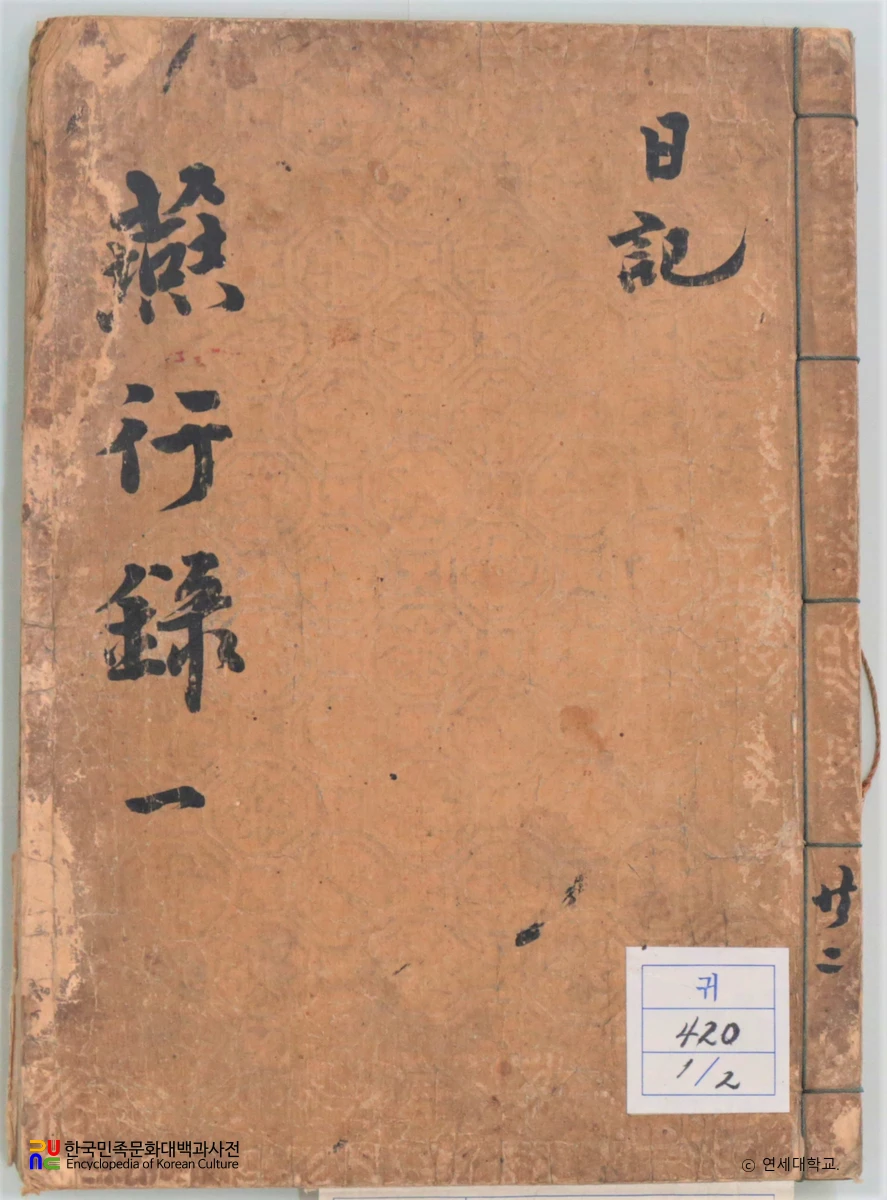 日記
燕行錄 一
廿二
귀
420
1/2
한국민족문화대백과사전
Encyclopedia of Korean Culture
© 연세대학교.